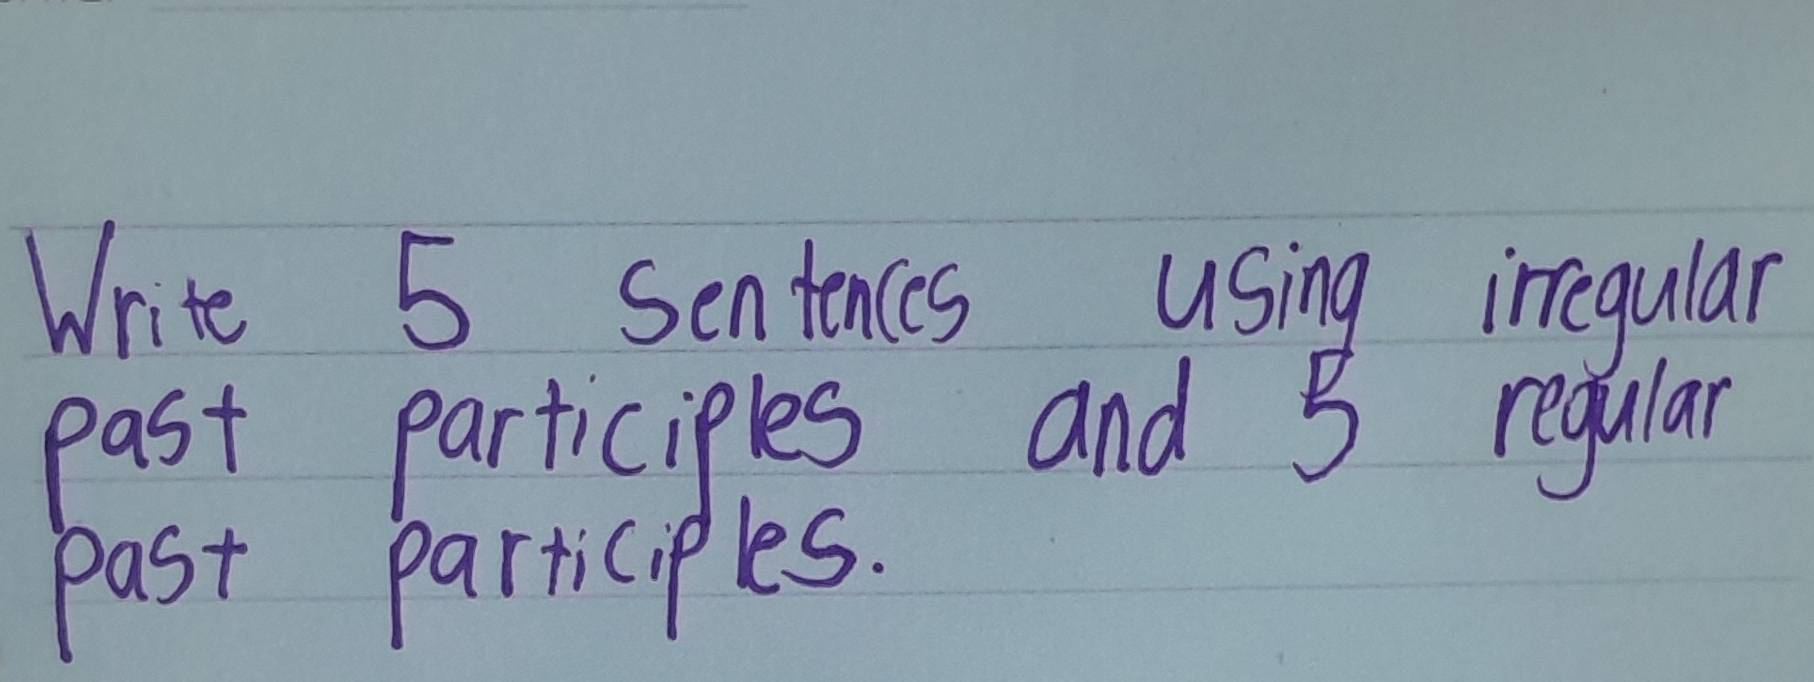 Write 5 sentences using irregular
past participles and 5 regular
past participles.